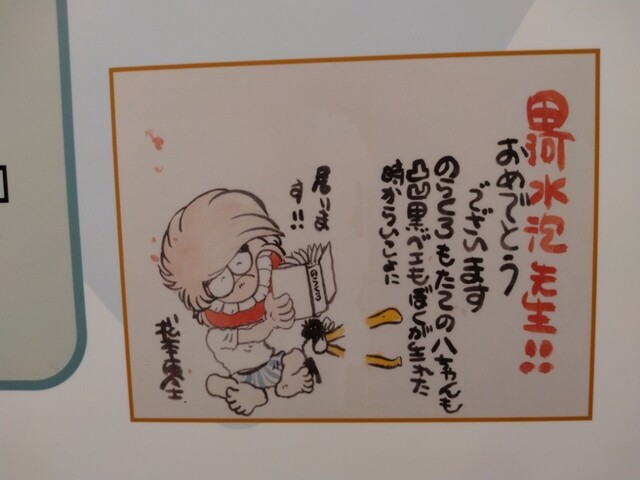 田河水泡先生!!
おめでとう
ございます
のらくろもたこの八ちゃんも
凸凹黒ベエもぼくが生れた
時からいっしょに
居りま
す!!
のらくろ
松本零士